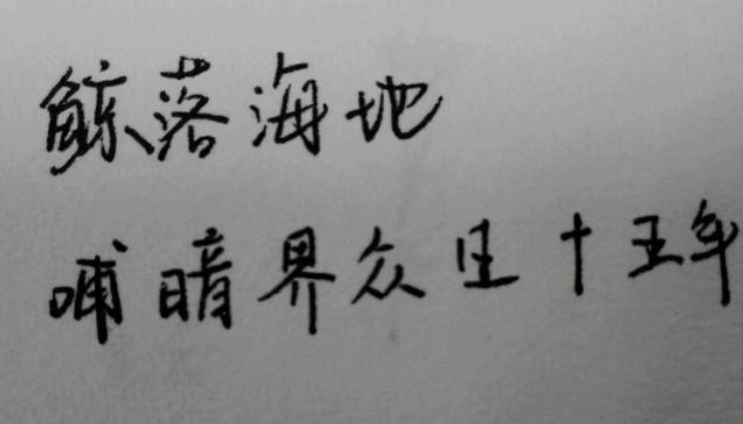 鲸落海地
哺暗界众里十五年